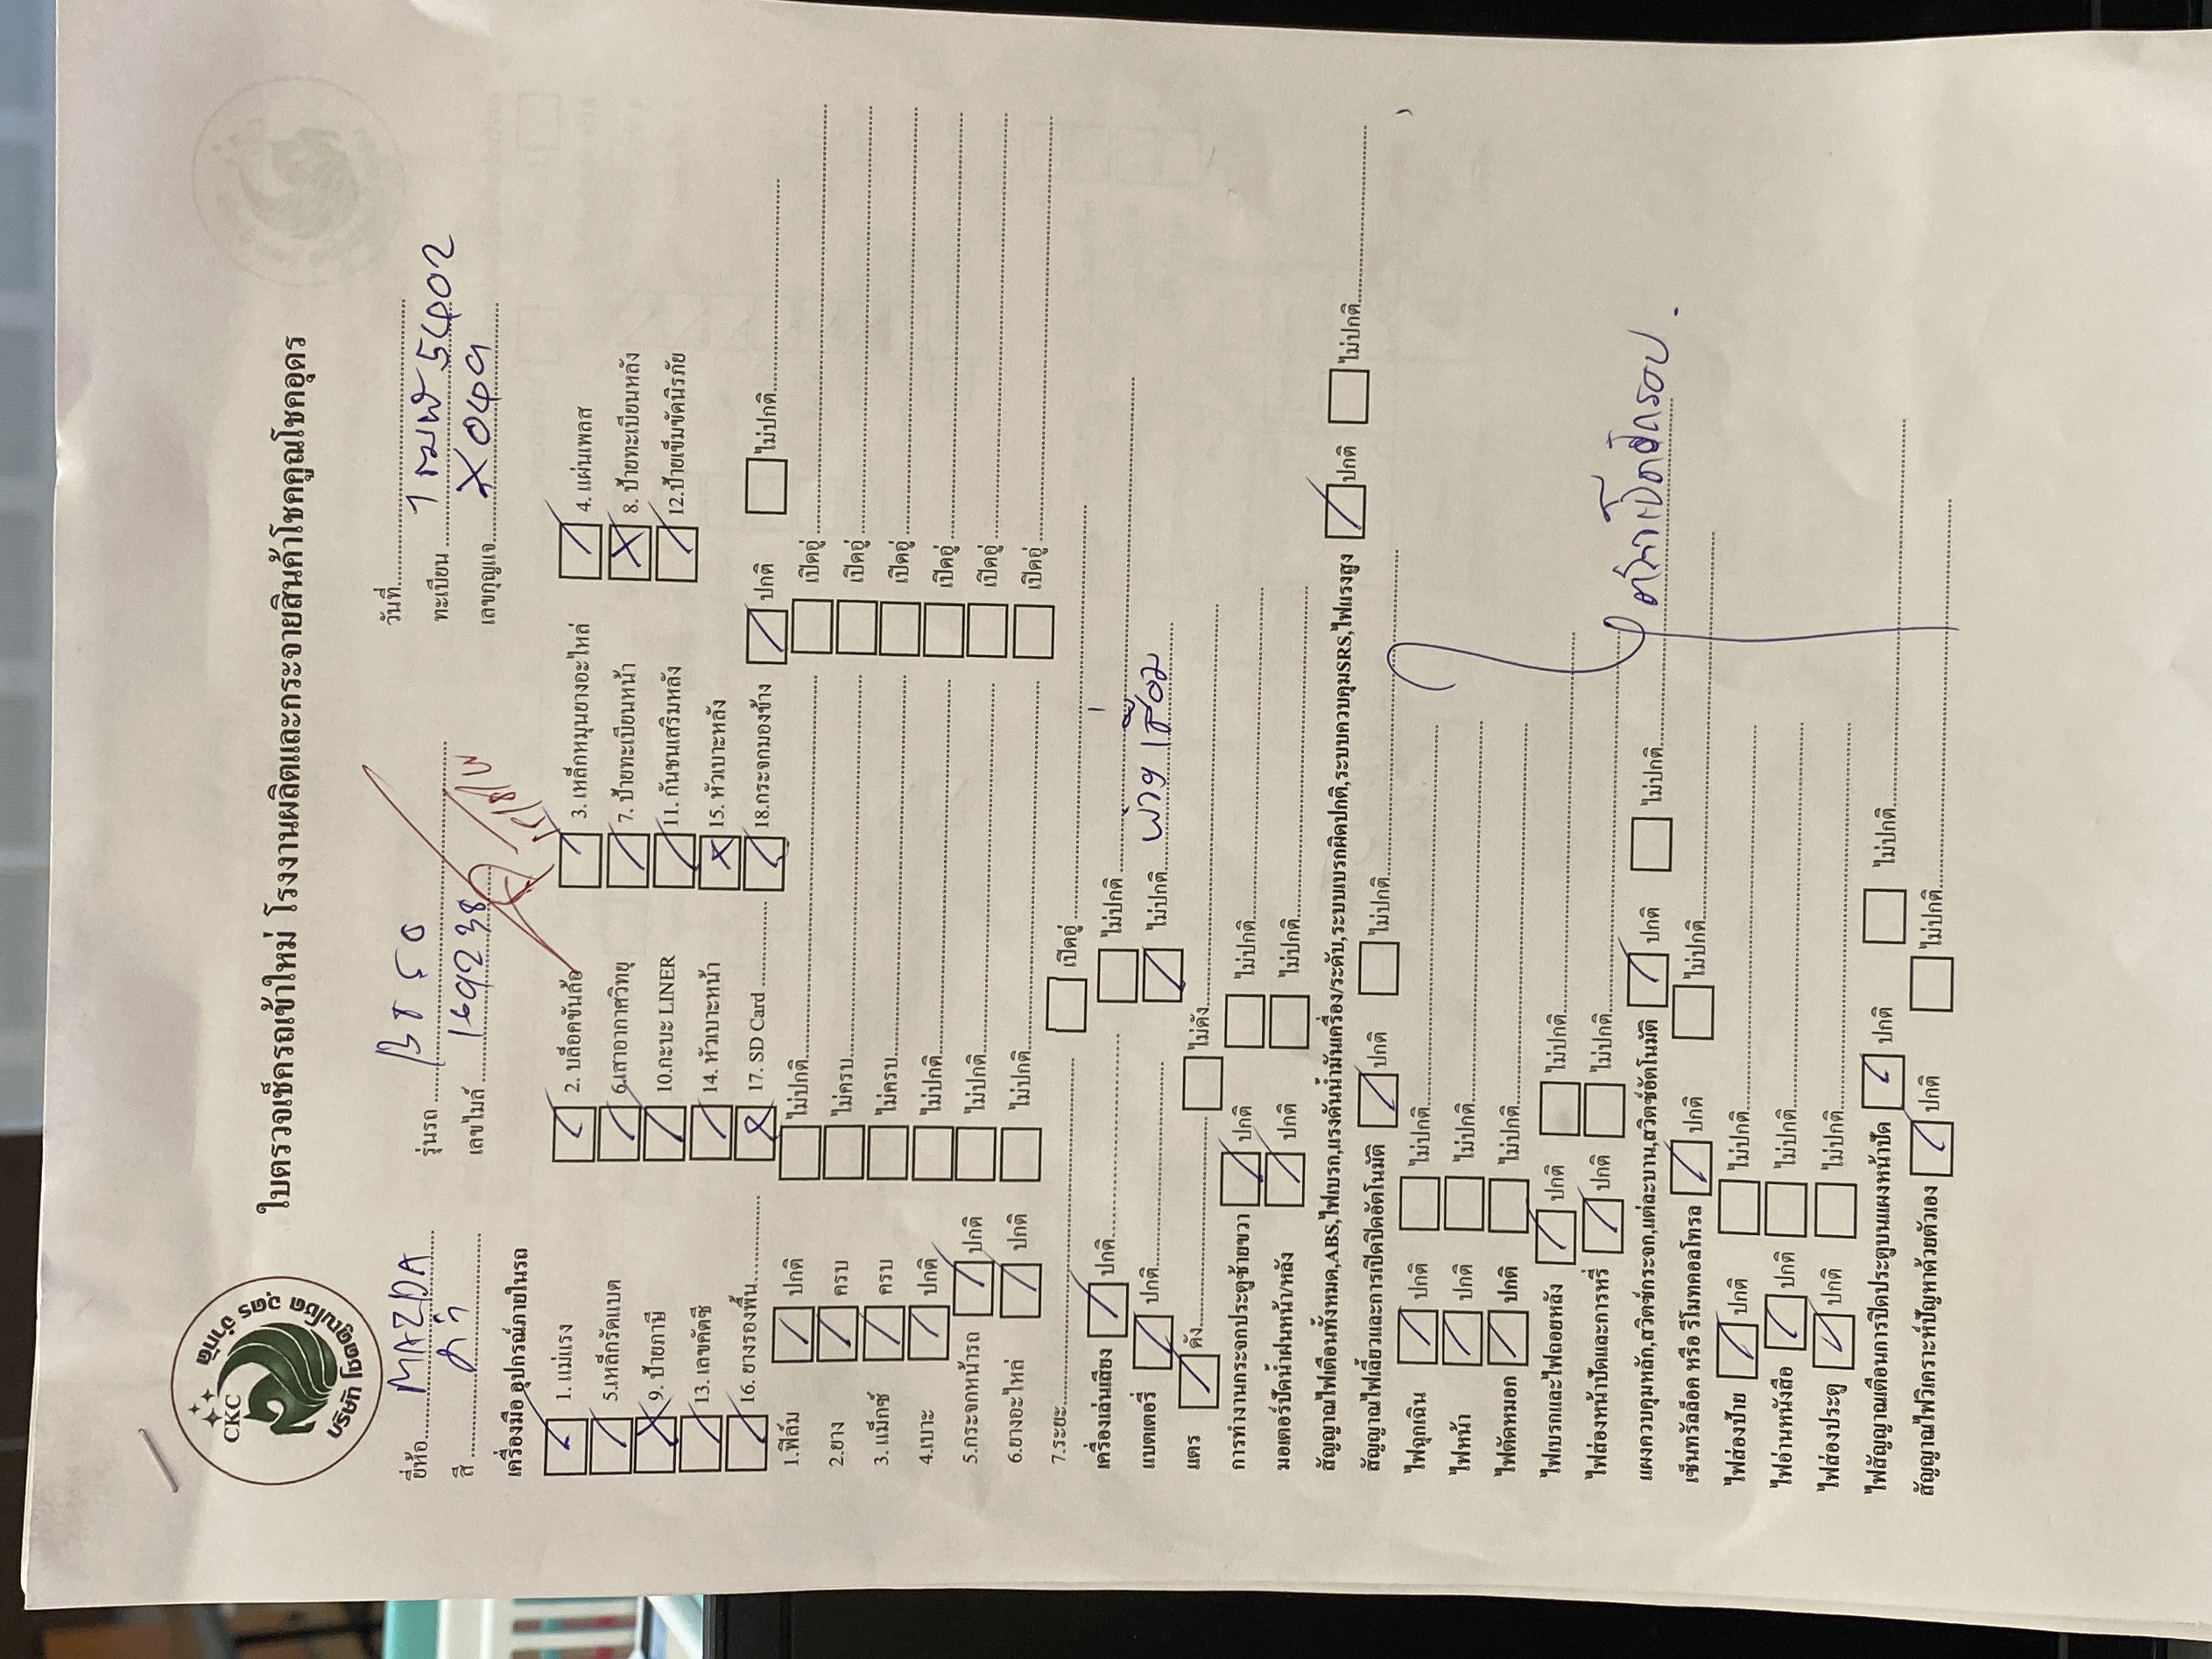 บริษัท โชคคูณโชค อุดร จำกัด
CKC
ใบตรวจเช็ครถเข้าใหม่ โรงงานผลิตและกระจายสินค้าโชคคูณโชคอุดร
วันที่
ยี่ห้อ MAZDA รุ่นรถ BT 50 ทะเบียน 1 ฒฬ 5402
สี ดำ เลขไมล์ 169238 เลขกุญแจ X049
เครื่องมือ อุปกรณ์ภายในรถ
1. แม่แรง 2. บล็อคขันล้อ 3. เหล็กหมุนยางอะไหล่ 4. แผ่นเพลส
5.เหล็กรัดแบต 6.เสาอากาศวิทยุ 7. ป้ายทะเบียนหน้า 8. ป้ายทะเบียนหลัง
9. ป้ายภาษี 10.กะบะ LINER 11. กันชนเสริมหลัง 12.ป้ายเข็มขัดนิรภัย
13. เลขคัตซี 14. หัวเบาะหน้า 15. หัวเบาะหลัง
16. ยางรองพื้น 17. SD Card 18.กระจกมองข้าง ปกติ ไม่ปกติ
1.ฟิล์ม ปกติ ไม่ปกติ เปิดอู่
2.ยาง ครบ ไม่ครบ เปิดอู่
3. แม็กซ์ ครบ ไม่ครบ เปิดอู่
4.เบาะ ปกติ ไม่ปกติ เปิดอู่
5.กระจกหน้ารถ ปกติ ไม่ปกติ เปิดอู่
6.ยางอะไหล่ ปกติ ไม่ปกติ เปิดอู่
7.ระยะ เปิดอู่
เครื่องเล่นเสียง ปกติ ไม่ปกติ
แบตเตอรี่ ปกติ ไม่ปกติ
แตร ดัง ไม่ดัง
การทำงานกระจกประตูซ้ายขวา ปกติ ไม่ปกติ
มอเตอร์ปัดน้ำฝนหน้า/หลัง ปกติ ไม่ปกติ
สัญญาณไฟเตือนทั้งหมด,ABS,ไฟเบรก,แรงดันน้ำมันเครื่อง/ระดับ,ระบบเบรกผิดปกติ,ระบบควบคุมSRS,ไฟแรงสูง ปกติ ไม่ปกติ
สัญญาณไฟเลี้ยวและการเปิดปิดอัตโนมัติ ปกติ ไม่ปกติ
ไฟฉุกเฉิน ปกติ ไม่ปกติ
ไฟหน้า ปกติ ไม่ปกติ
ไฟตัดหมอก ปกติ ไม่ปกติ
ไฟเบรกและไฟถอยหลัง ปกติ ไม่ปกติ
ไฟส่องหน้าปัดและการหรี่ ปกติ ไม่ปกติ
แผงควบคุมหลัก,สวิตซ์กระจก,แต่ละบาน,สวิตซ์อัตโนมัติ ปกติ ไม่ปกติ
เซ็นทรัลล็อค หรือ รีโมทคอลโทรล ปกติ ไม่ปกติ
ไฟส่องป้าย ปกติ ไม่ปกติ
ไฟอ่านหนังสือ ปกติ ไม่ปกติ
ไฟส่องประตู ปกติ ไม่ปกติ
ไฟสัญญาณเตือนการปิดประตูบนแผงหน้าปัด ปกติ ไม่ปกติ
สัญญาณไฟวิเคราะห์ปัญหาด้วยตัวเอง ปกติ ไม่ปกติ